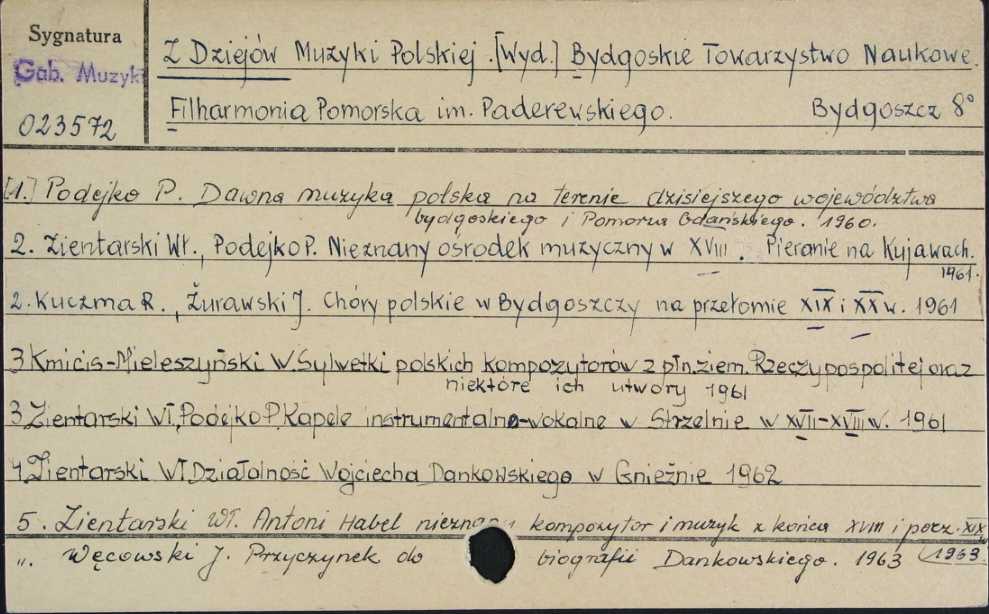 Sygnatura
Gab. Muzyki
023572
Z Dziejów Muzyki Polskiej. [Wyd.] Bydgoskie Towarzystwo Naukowe.
Filharmonia Pomorska im. Paderewskiego. Bydgoszcz 8°
[1.] Podejko P. Dawna muzyka polska na terenie dzisiejszego województwa
bydgoskiego i Pomorza Gdańskiego. 1960.
2. Zientarski Wł., Podejko P. Nieznany ośrodek muzyczny w XVIII. Pieranie na Kujawach.
1961.
2. Kuczma R., Żurawski J. Chóry polskie w Bydgoszczy na przełomie XIX i XX w. 1961
3 Kmicis-Mieleszyński W. Sylwetki polskich kompozytorów z płn. ziem. Rzeczypospolitej oraz
niektóre ich utwory 1961
3 Zientarski Wł, Podejko P. Kapele instrumentalno-wokalne w Strzelnie w XVII-XVIII w. 1961
4. Zientarski Wł Działalność Wojciecha Dankowskiego w Gnieźnie 1962
5. Zientarski Wł. Antoni Habel nieznany kompozytor i muzyk z końca XVIII i pocz. XIX w
1963.
„. Węcowski J. Przyczynek do biografii Dankowskiego. 1963